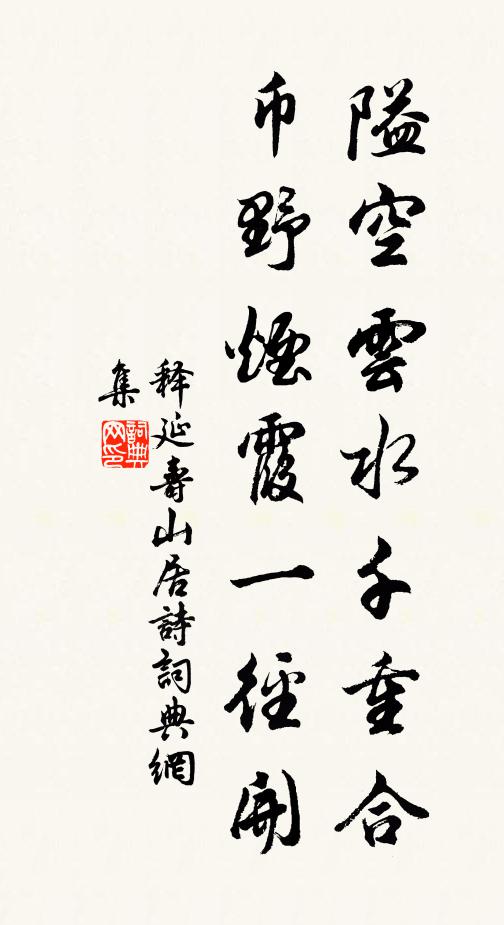 隘空雲水千重合
帀野煙霞一徑開
释延壽山居詩詞典網
集
詞典网印